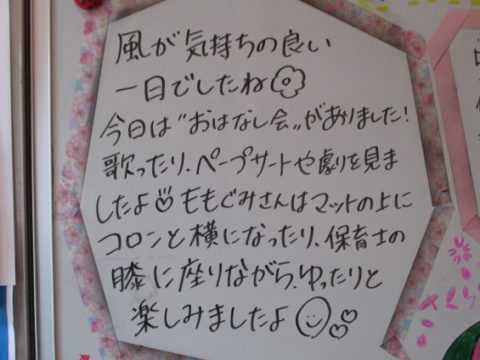 風が気持ちの良い
一日でしたね
今日は"おはなし会"がありました!
歌ったり、ペープサートや劇を見ま
したよ ももぐみさんはマットの上に
コロンと横になったり、保育士の
膝に座りながら、ゆったりと
楽しみましたよ